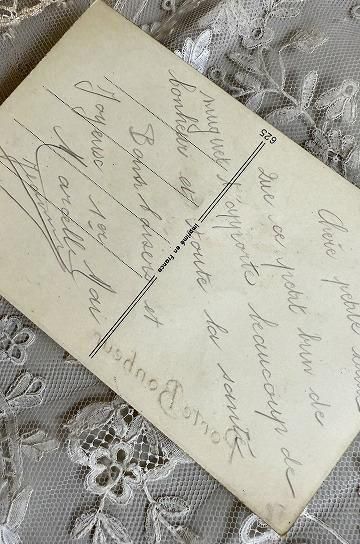 Chère petite
Que ce petit brin de
muguet t'apporte beaucoup de
bonheur et toute la santé
Bons baisers et
Joyeuse 1er Mai
625
Imprimé en France
Porte Bonheur